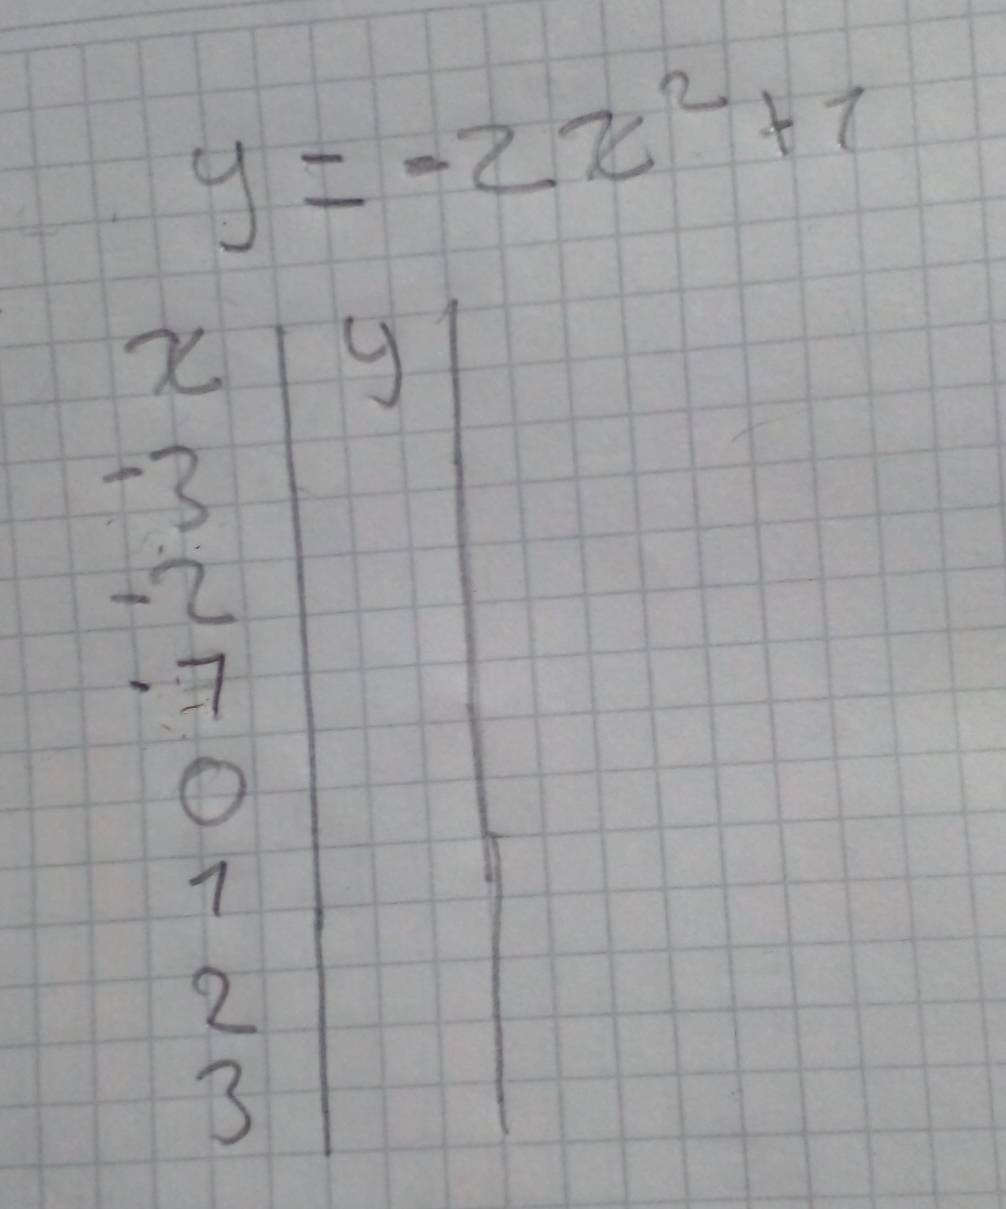 y = -2x²+1
x y
-3
-2
-1
0
1
2
3